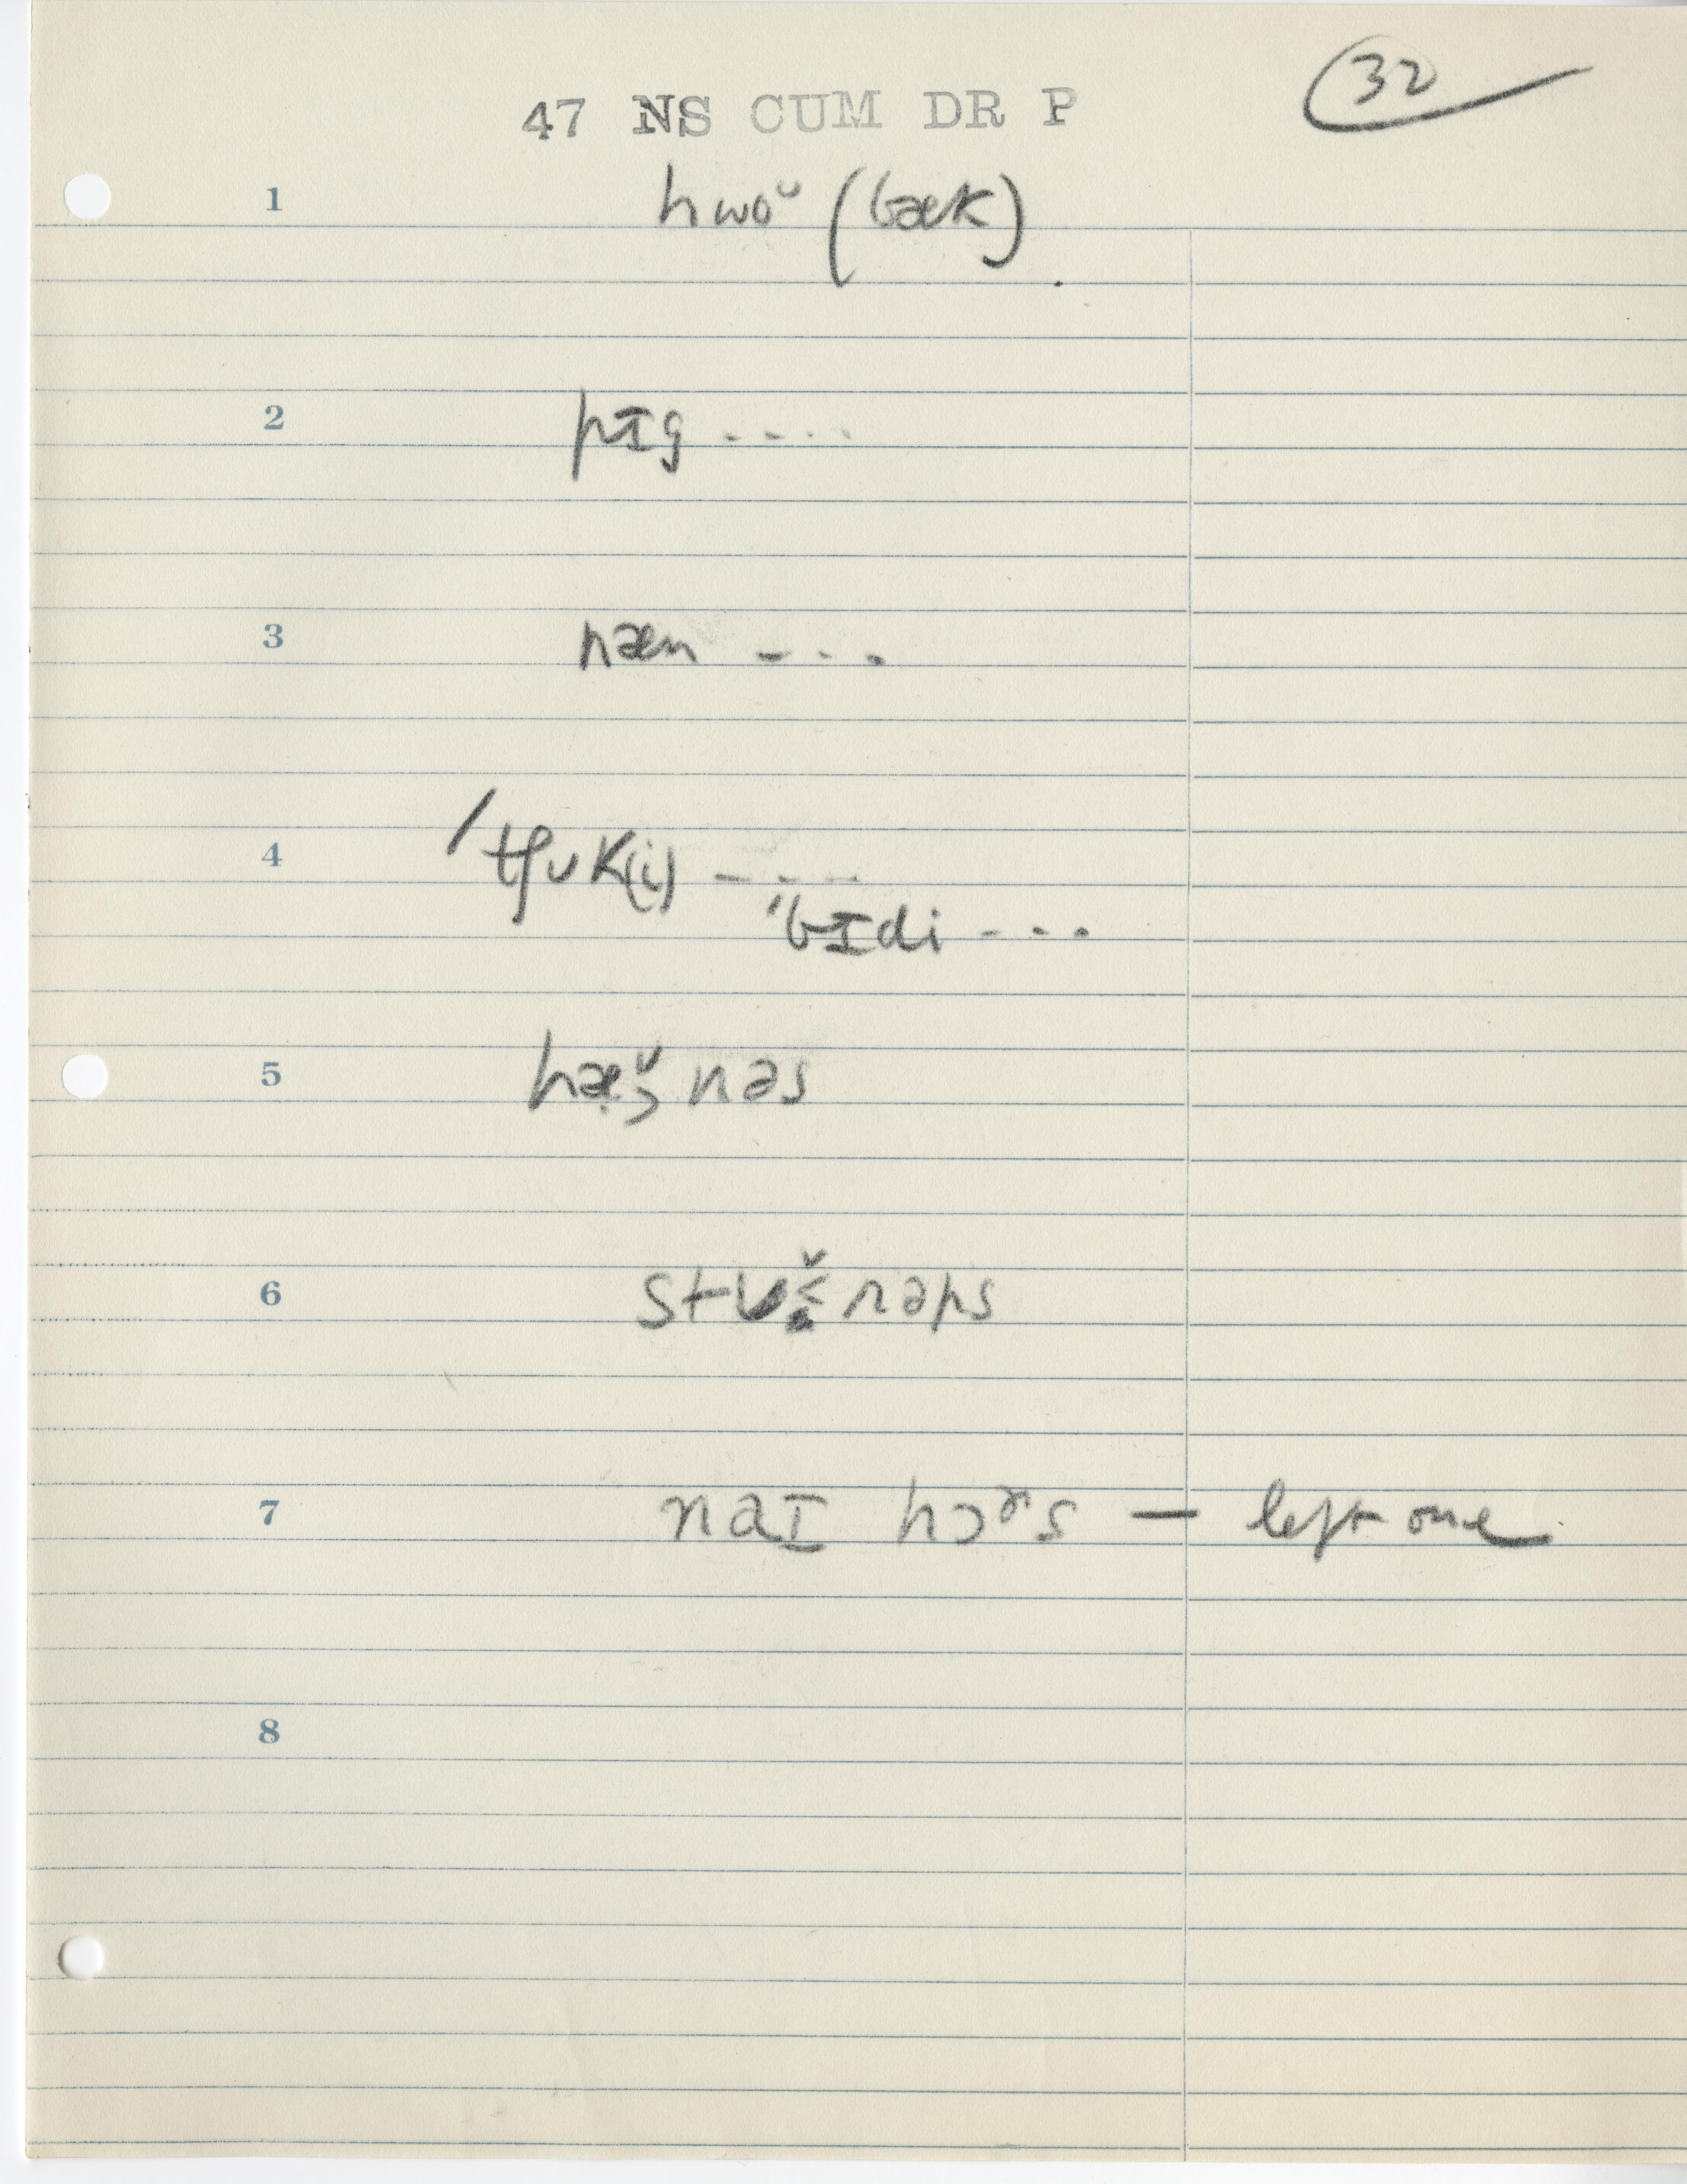 47 NS CUM DR P
32
1 hwoᵕ (bæk)
2 pɪg ----
3 næn ---
4 ˈtʃʊk(i) ----
ˈbɪdi ---
5 nəs
6 nəps
7 naɪ hɔɚs — left one
8